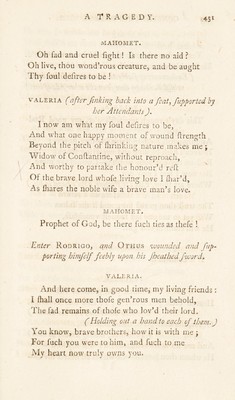 A TRAGEDY. 451
MAHOMET.
Oh ſad and cruel ſight! Is there no aid?
Oh live, thou wond'rous creature, and be aught
Thy ſoul deſires to be!
VALERIA (after ſinking back into a ſeat, ſupported by
her Attendants).
I now am what my ſoul deſires to be,
And what one happy moment of wound ſtrength
Beyond the pitch of ſhrinking nature makes me;
Widow of Conſtantine, without reproach,
And worthy to partake the honour'd reſt
Of the brave lord whoſe living love I ſhar'd,
As ſhares the noble wife a brave man's love.
MAHOMET.
Prophet of God, be there ſuch ties as theſe!
Enter RODRIGO, and OTHUS wounded and ſup-
porting himſelf feebly upon his ſheathed ſword.
VALERIA.
And here come, in good time, my living friends:
I ſhall once more thoſe gen'rous men behold,
The ſad remains of thoſe who lov'd their lord.
(Holding out a hand to each of them.)
You know, brave brothers, how it is with me;
For ſuch you were to him, and ſuch to me
My heart now truly owns you.